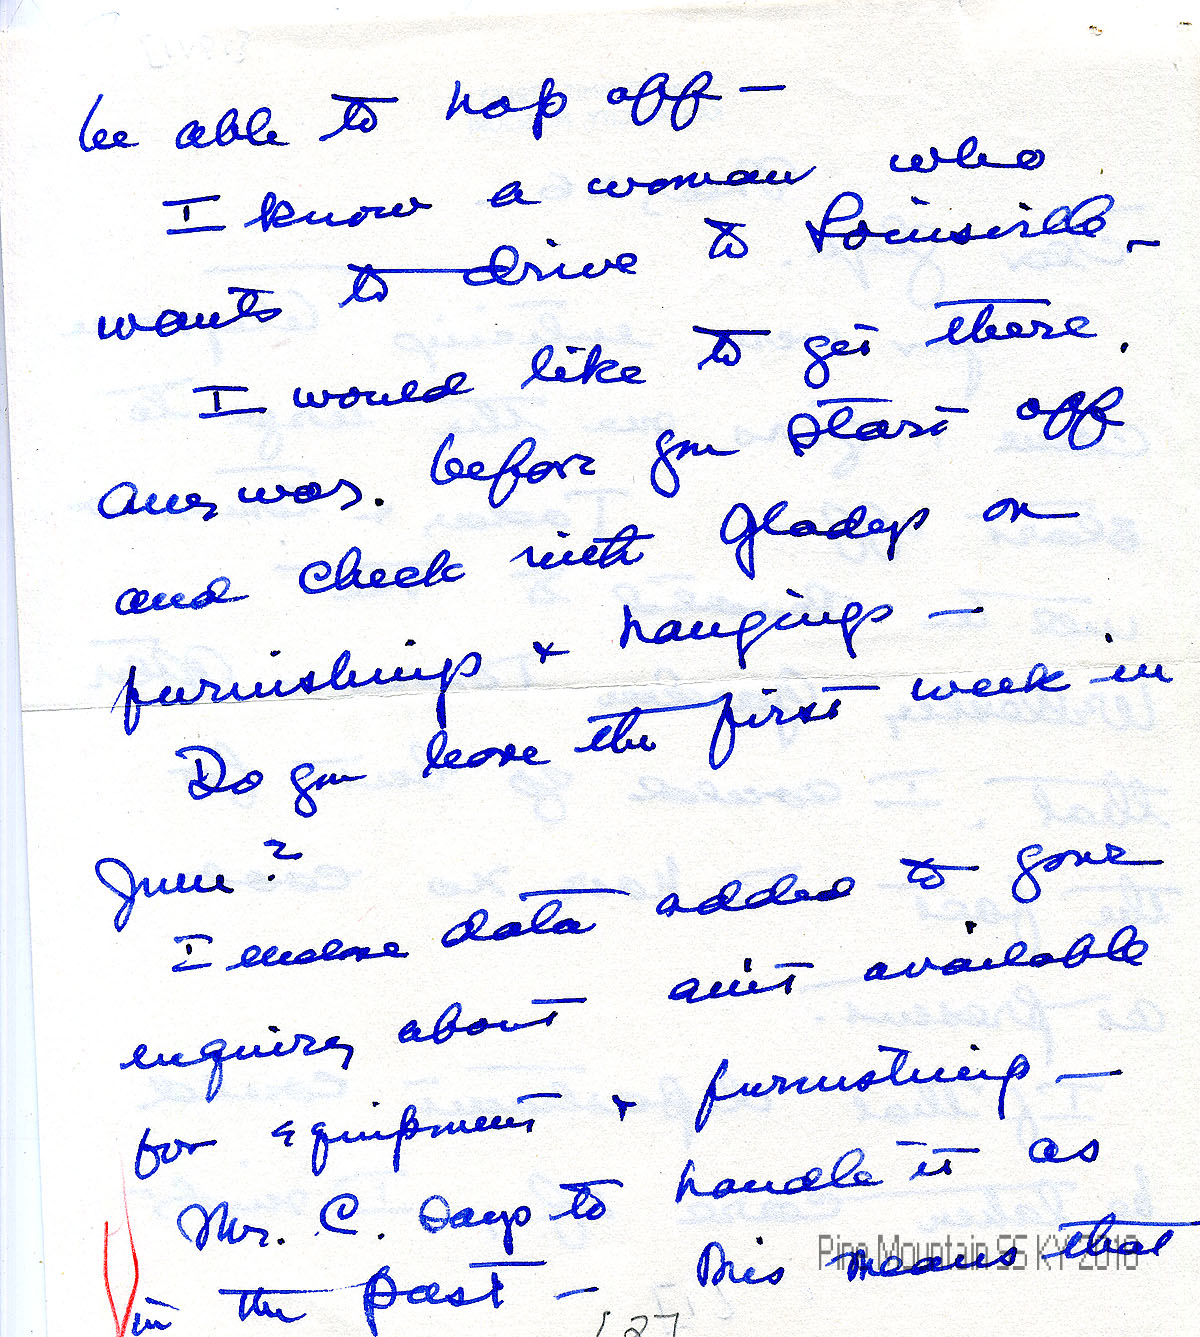 be able to hop off —
I know a woman who
wants to drive to Louisville –
I would like to get there
any way. before you start off
and check with Gladys on
furnishings + hangings —
Do you leave the first week in
June?
I enclose data added to your
enquiry about am't available
for equipment + furnishing —
Mr. C. says to handle it as
in the past — This means that
Pine Mountain SS KY 2010
127